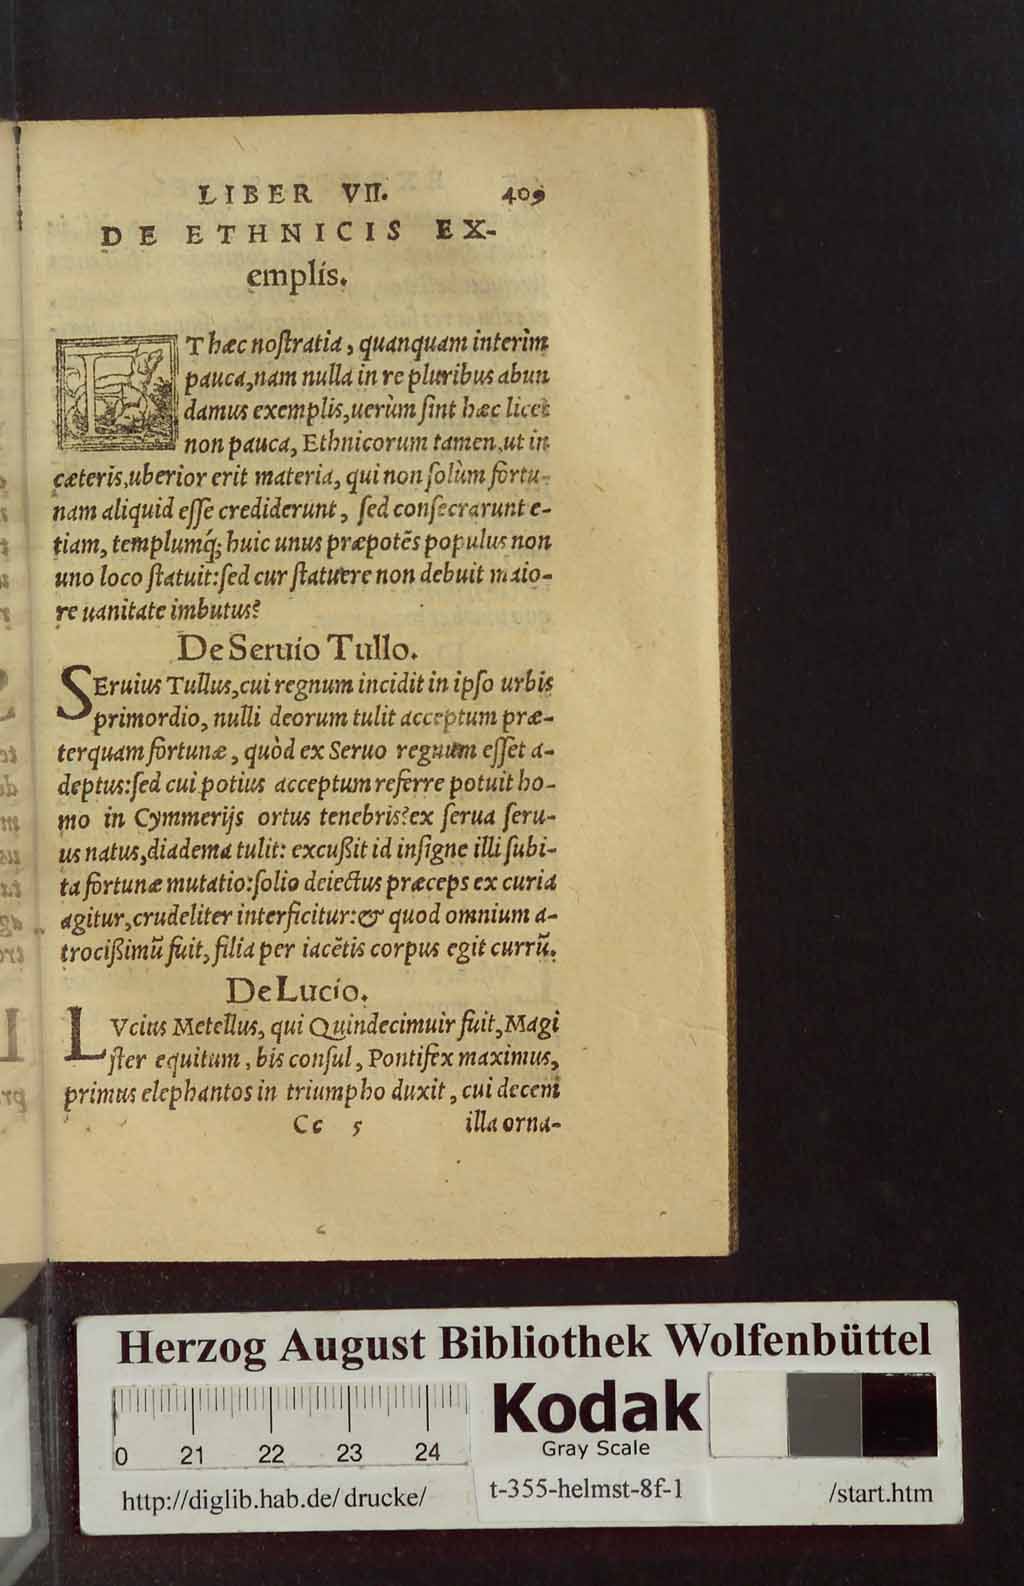 LIBER VII. 409
DE ETHNICIS EX-
emplis.
ET hæc noſtratia, quanquam interìm
pauca, nam nulla in re pluribus abun
damus exemplis, uerùm ſint hæc licet
non pauca, Ethnicorum tamen, ut in
cæteris, uberior erit materia, qui non ſolùm fortu-
nam aliquid eſſe crediderunt, ſed conſecrarunt e-
tiam, templumq́; huic unus præpotẽs populus non
uno loco ſtatuit: ſed cur ſtatuere non debuit maio-
re uanitate imbutus?
De Seruio Tullo.
SEruius Tullus, cui regnum incidit in ipſo urbis
primordio, nulli deorum tulit acceptum præ-
terquam fortunæ, quòd ex Seruo regnum eſſet a-
deptus: ſed cui potius acceptum referre potuit ho-
mo in Cymmerijs ortus tenebris? ex ſerua ſeru-
us natus, diadema tulit: excußit id inſigne illi ſubi-
ta fortunæ mutatio: ſolio deiectus præceps ex curia
agitur, crudeliter interficitur: & quod omnium a-
trocißimũ fuit, filia per iacẽtis corpus egit currũ.
De Lucio.
LVcius Metellus, qui Quindecimuir fuit, Magi
ſter equitum, bis conſul, Pontifex maximus,
primus elephantos in triumpho duxit, cui decem
Cc 5 illa orna-
Herzog August Bibliothek Wolfenbüttel
0 21 22 23 24
Kodak
Gray Scale
http://diglib.hab.de/drucke/ t-355-helmst-8f-1 /start.htm